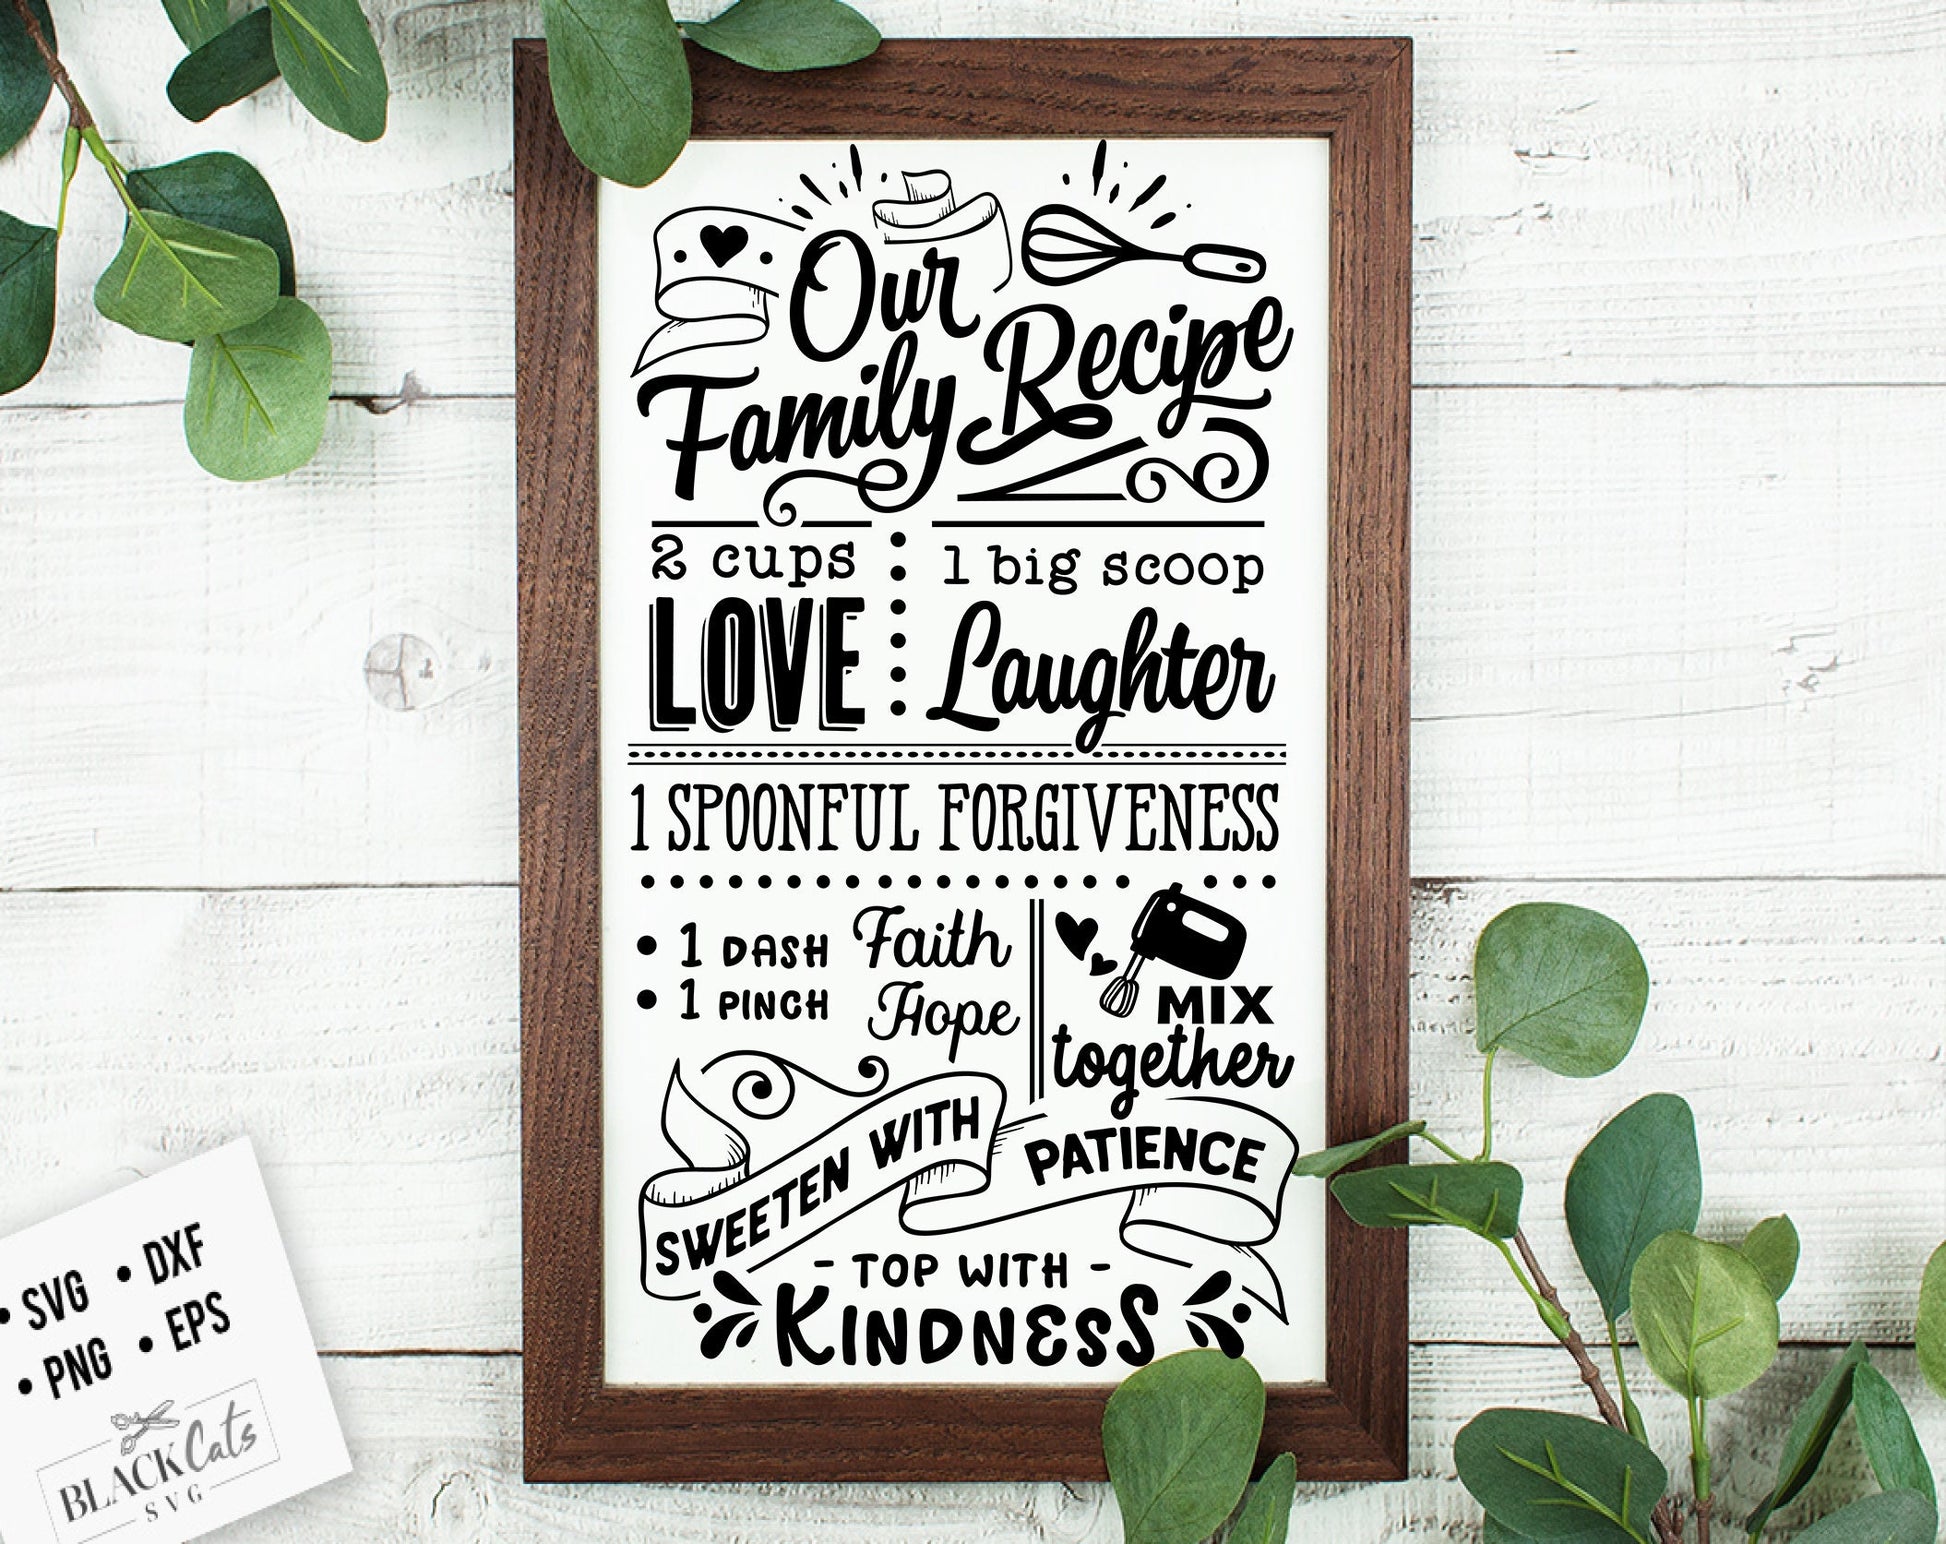 Our
Family Recipe
2 cups
LOVE
1 big scoop
Laughter
1 SPOONFUL FORGIVENESS
• 1 DASH Faith
• 1 PINCH Hope
MIX
together
SWEETEN WITH PATIENCE
- TOP WITH -
KINDNESS
• SVG • DXF
• PNG • EPS
BLACK Cats
SVG